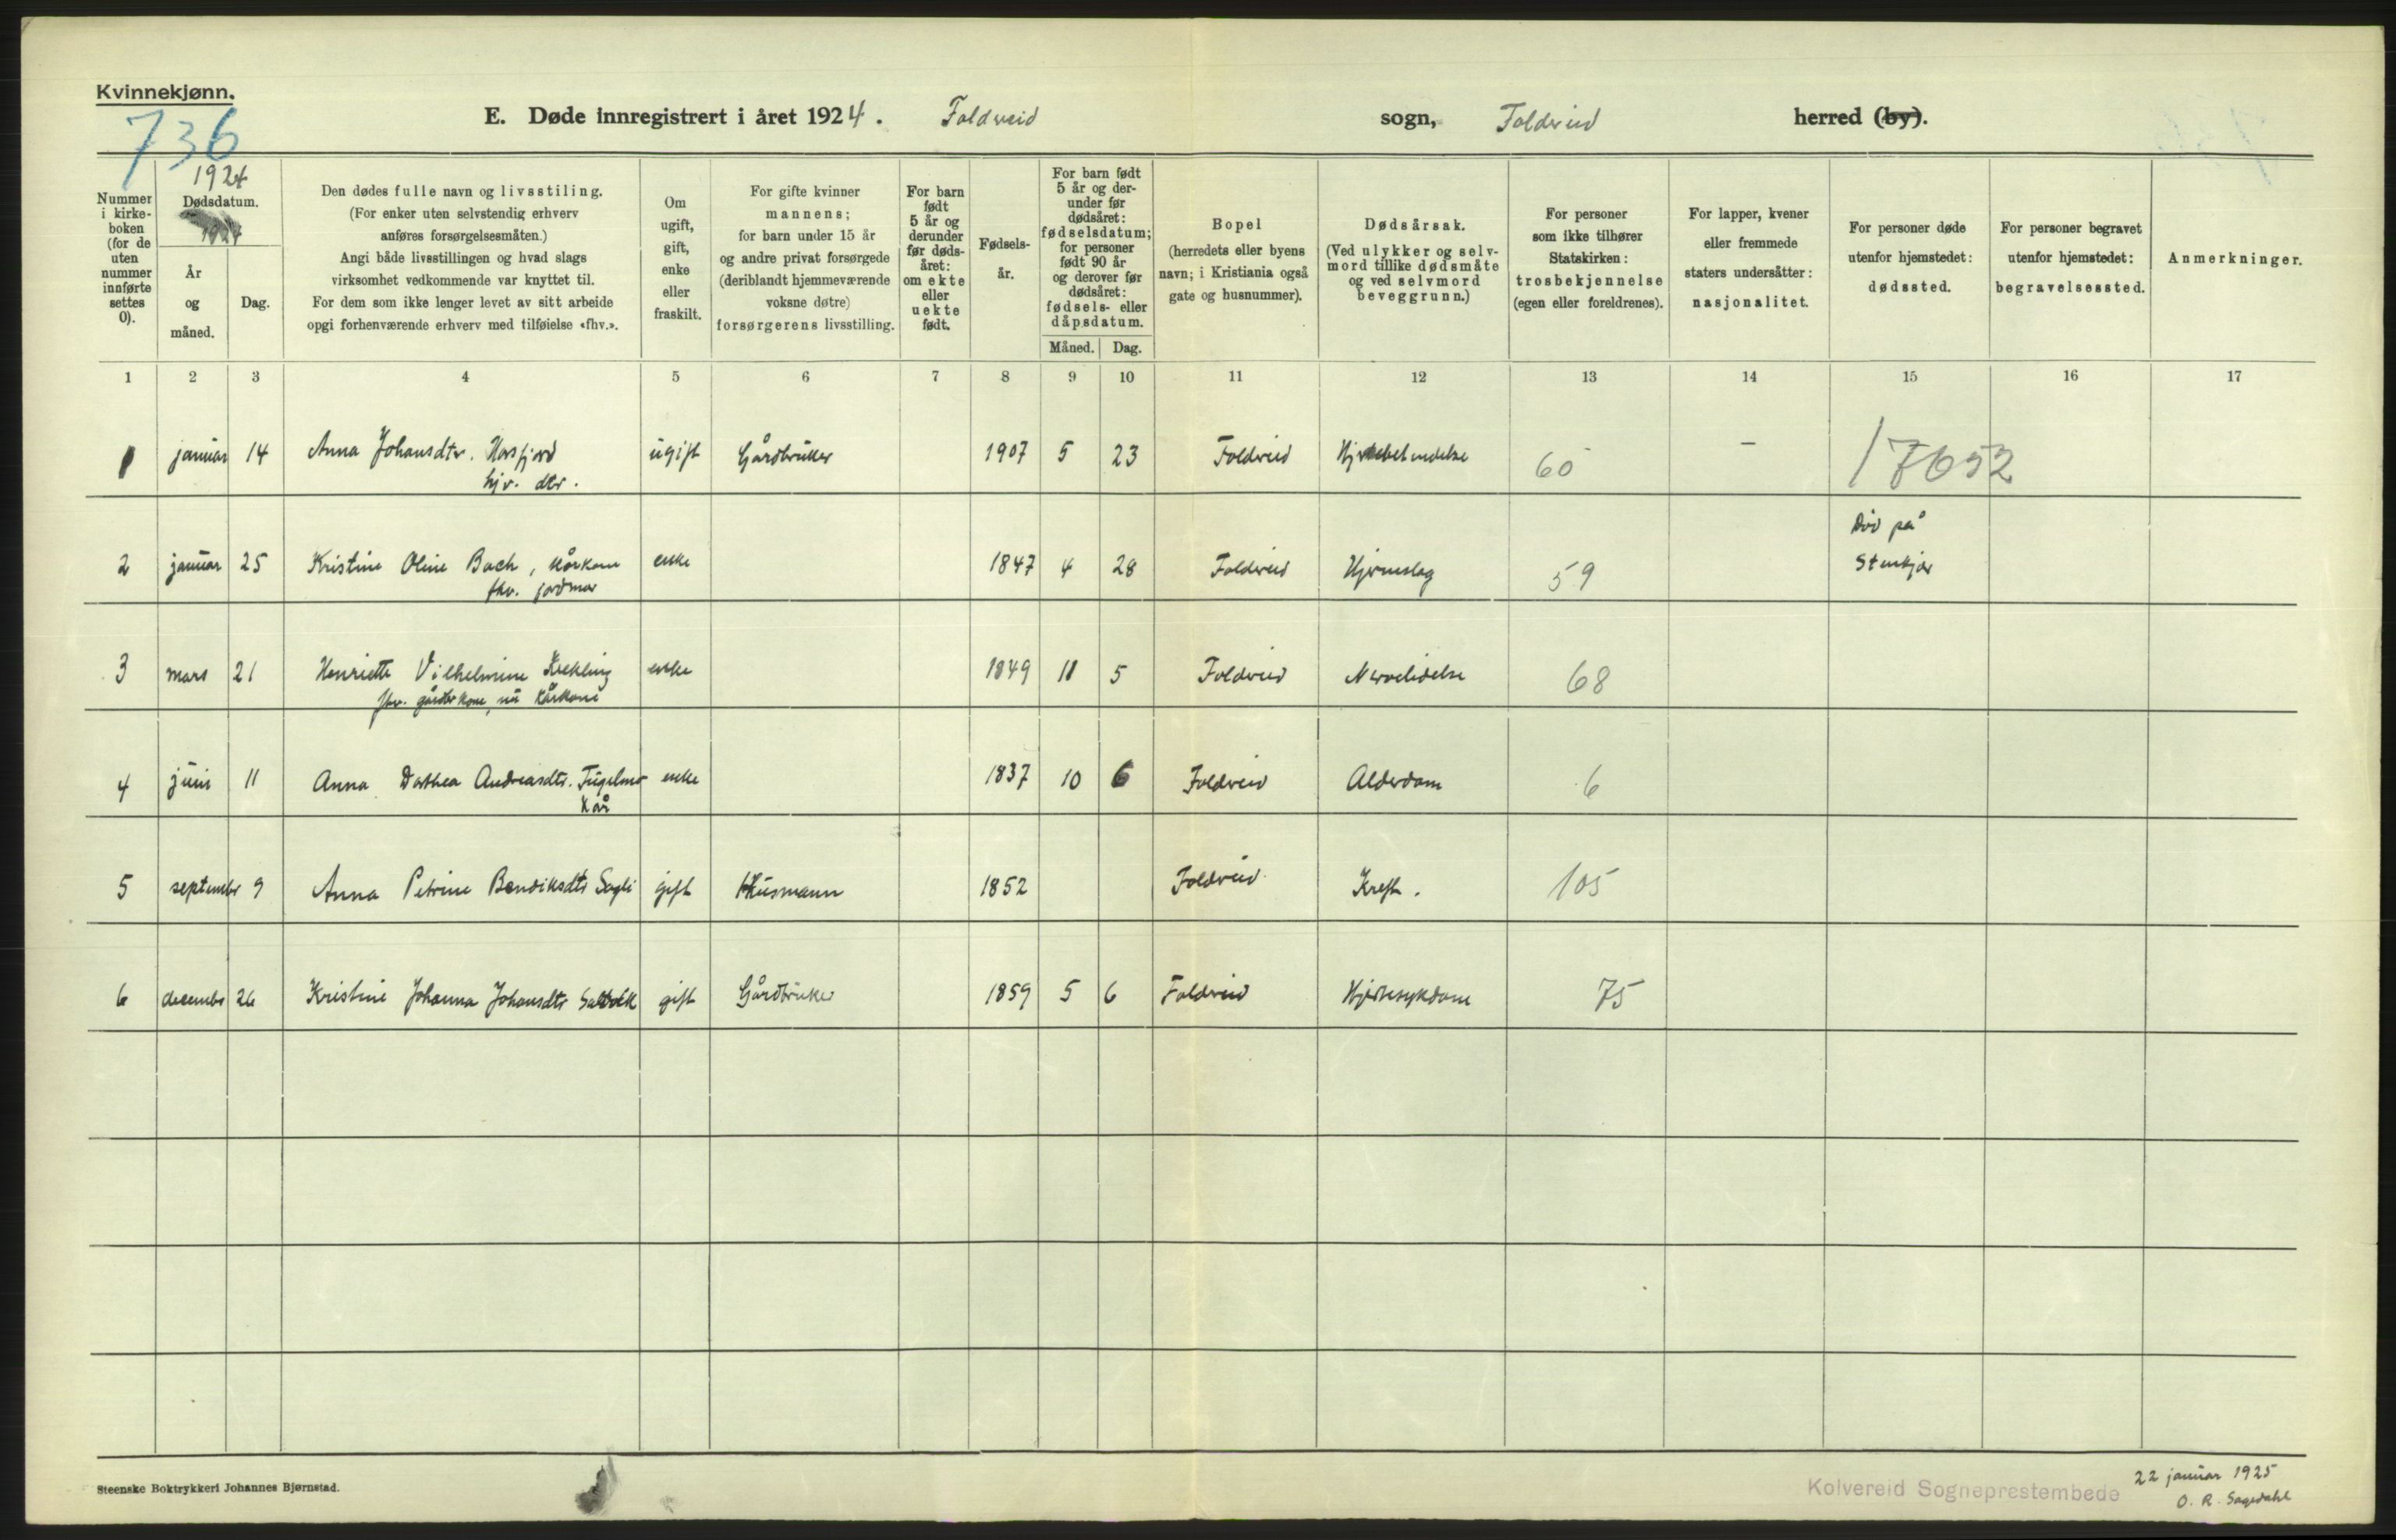 Kvinnekjønn.
736
E. Døde innregistrert i året 1924. Foldereid sogn, Foldereid herred (by).
Nummer i kirkeboken (for de uten nummer innførte settes 0).
1924
Dødsdatum.
1924
År og måned.
Dag.
Den dødes fulle navn og livsstiling.
(For enker uten selvstendig erhverv
anføres forsørgelsesmåten.)
Angi både livsstillingen og hvad slags
virksomhet vedkommende var knyttet til.
For dem som ikke lenger levet av sitt arbeide
opgi forhenværende erhverv med tilføielse «fhv.».
Om ugift, gift, enke eller fraskilt.
For gifte kvinner
mannens;
for barn under 15 år
og andre privat forsørgede
(deriblandt hjemmeværende
voksne døtre)
forsørgerens livsstilling.
For barn født 5 år og derunder før dødsåret: om ekte eller uekte født.
Fødselsår.
For barn født 5 år og derunder før dødsåret: fødselsdatum; for personer født 90 år og derover før dødsåret: fødsels- eller dåpsdatum.
Måned. Dag.
Bopel
(herredets eller byens
navn; i Kristiania også
gate og husnummer).
Dødsårsak.
(Ved ulykker og selvmord tillike dødsmåte og ved selvmord beveggrunn.)
For personer
som ikke tilhører
Statskirken:
trosbekjennelse
(egen eller foreldrenes).
For lapper, kvener
eller fremmede
staters undersåtter:
nasjonalitet.
For personer døde
utenfor hjemstedet:
dødssted.
For personer begravet
utenfor hjemstedet:
begravelsessted.
Anmerkninger.
1 2 3 4 5 6 7 8 9 10 11 12 13 14 15 16 17
1 januar 14 Anna Johansdtr. Horsfjord ugift Gårdbruker 1907 5 23 Foldereid 60 - 17652
hjv. dtr.
2 januar 25 Kristine Oline Bach, kårkone enke 1847 4 28 Foldereid Hjerneslag 59 Død på
Stenkjær
fhv. jordmor
3 mars 21 Henriette Vilhelmine Krekling enke 1849 11 5 Foldereid Nervelidelse 68
fhv. gårdbr kone, nu kårkone
4 juni 11 Anna Dorthea Andreasdtr. enke 1837 10 6 Foldereid Alderdom 6
Kår
5 septembr 9 Anna Petrine Bendiksdtr Sagli gift Husmann 1852 Foldereid Kreft. 105
6 decembr 26 Kristine Johanna Johansdtr gift Gårdbruker 1859 5 6 Foldereid Hjertesykdom 75
Steenske Boktrykkeri Johannes Bjørnstad.
Kolvereid Sogneprestembede 22 januar 1925
O. R. Sagedahl